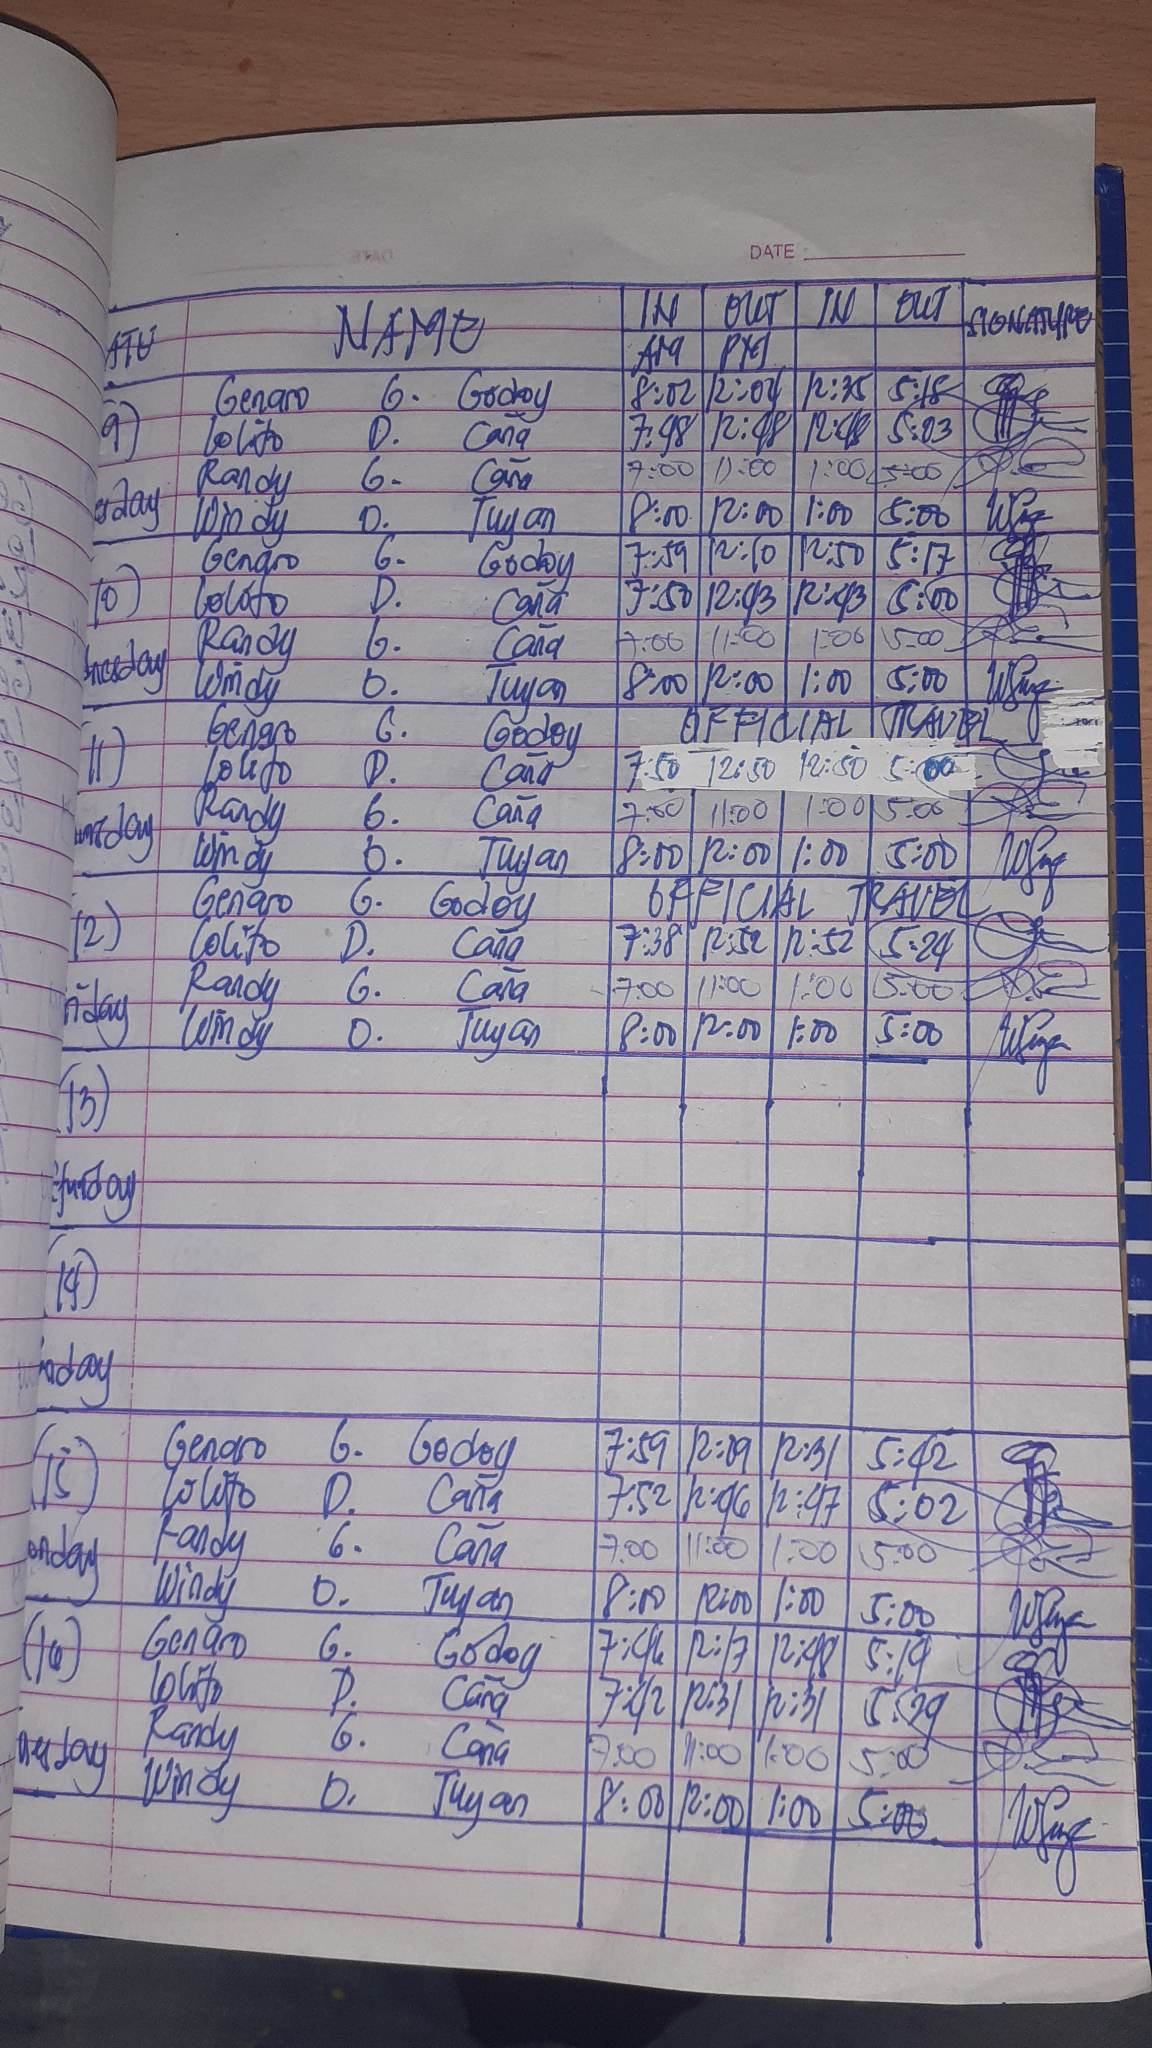 DATE
NAME IN OUT IN OUT SIGNATURE
AM PM
Genaro G. Godoy 8:02 12:04 12:35 5:18
9) Lolito D. Caña 7:48 12:48 12:48 5:03
Randy G. Caña 7:00 11:00 1:00 5:00
Windy O. Tuyan 8:00 12:00 1:00 5:00
Genaro G. Godoy 7:59 12:10 12:50 5:17
10) Lolito D. Caña 7:50 12:43 12:43 5:00
Randy G. Caña 7:00 11:00 1:00 5:00
Windy O. Tuyan 8:00 12:00 1:00 5:00
Genaro G. Godoy OFFICIAL TRAVEL
11) Lolito D. Caña 7:50 12:50 12:50 5:00
Randy G. Caña 7:00 11:00 1:00 5:00
Windy O. Tuyan 8:00 12:00 1:00 5:00
Genaro G. Godoy OFFICIAL TRAVEL
(12) Lolito D. Caña 7:38 12:52 12:52 5:24
Randy G. Caña 7:00 11:00 1:00 5:00
Windy O. Tuyan 8:00 12:00 1:00 5:00
(13)
(14)
(15) Genaro G. Godoy 7:59 12:09 12:31 5:42
Lolito D. Caña 7:52 12:46 12:47 5:02
Randy G. Caña 7:00 11:00 1:00 5:00
Windy O. Tuyan 8:00 12:00 1:00 5:00
(16) Genaro G. Godoy 7:46 12:17 12:48 5:19
Lolito D. Caña 7:42 12:31 12:31 5:29
Randy G. Caña 7:00 11:00 1:00 5:00
Windy O. Tuyan 8:00 12:00 1:00 5:00